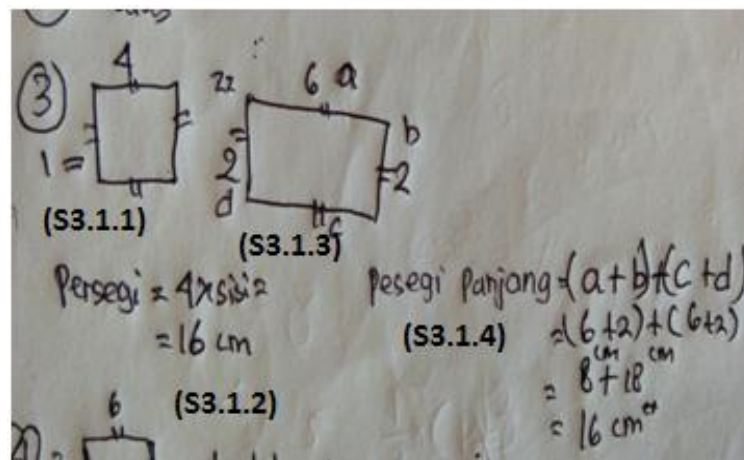 ③
4
1 =
(S3.1.1)
6 a
b
2
2
d
c
(S3.1.3)
Persegi = 4 x sisi =
= 16 cm
(S3.1.2)
Pesegi Panjang = (a + b) + (c + d)
(S3.1.4)
= (6 + 2) + (6 + 2)
cm cm
= 8 + 18
= 16 cm
6